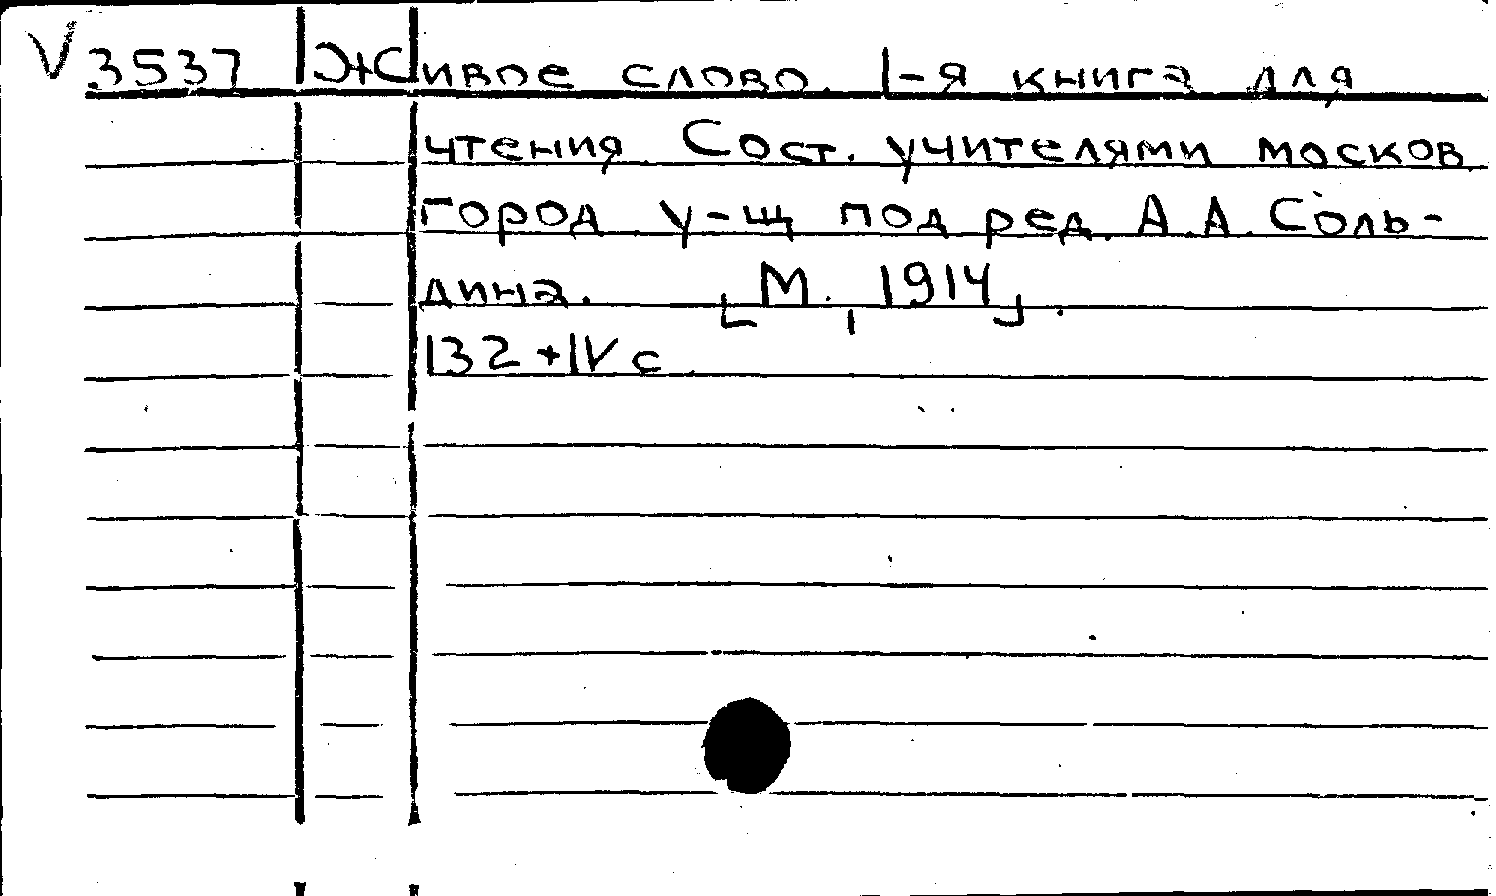 V 3537 Живое слово. 1-я книга для
чтения Сост. учителями москов.
город у-щ под ред. А.А. Соль-
дина. [М., 1914].
132+IV с.